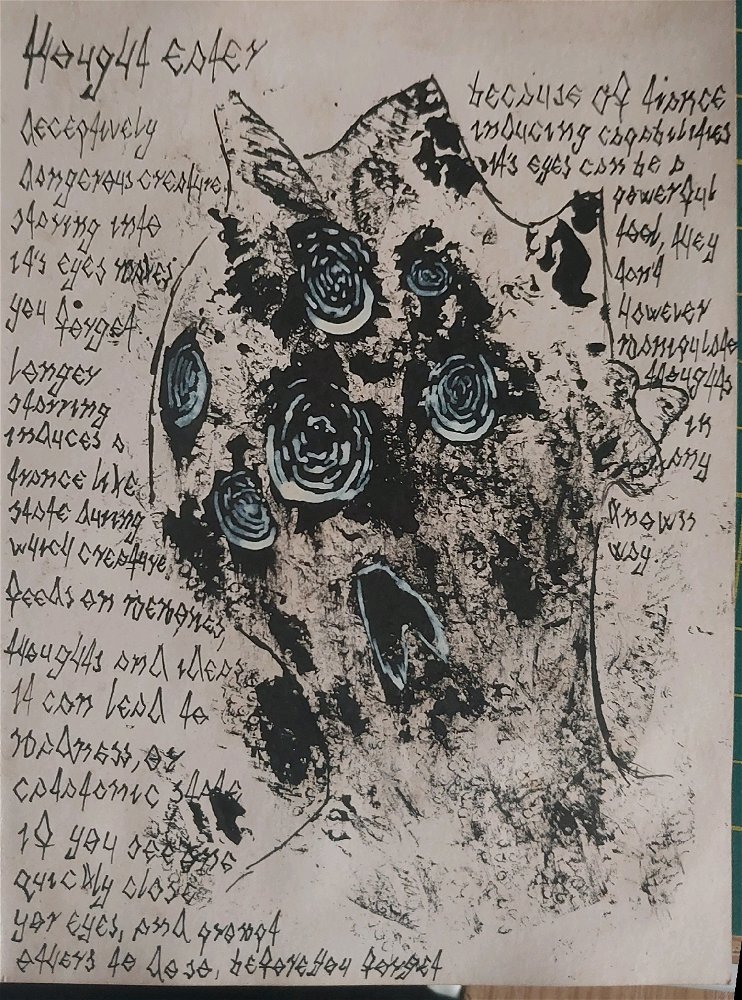 Thought eater
deceptively
dangerous creature,
staring into
it's eyes makes
you forget
longer
staring
induces a
trance like
state during
which creature
feeds on memories,
thoughts and ideas
it can lead to
madness, or
catatonic state
if you see one
quickly close
yor eyes, and prompt
others to do so, before you forget
because of trance
inducing capabilities
it's eyes can be a
powerful
tool, they
don't
however
manipulate
thoughts
in
any
known
way.